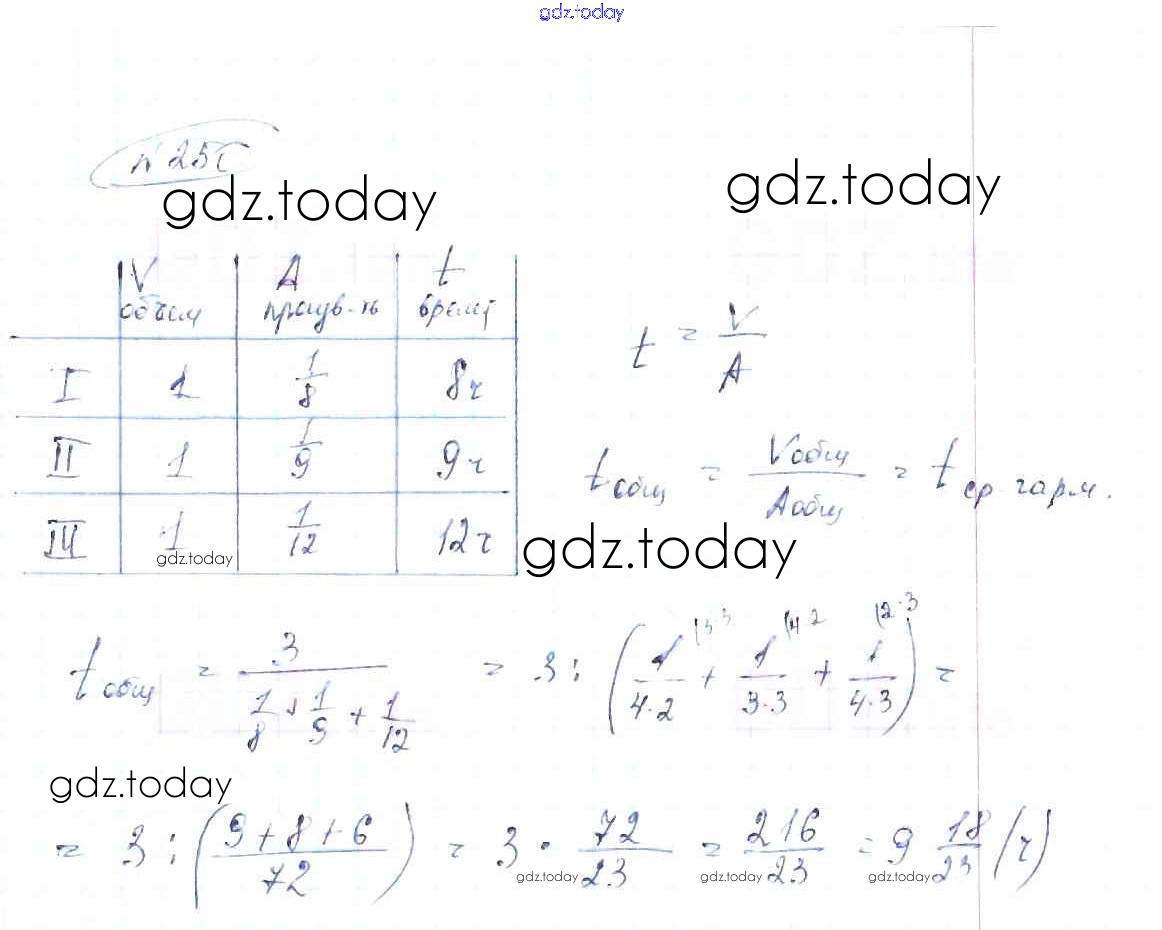 gdz.today
gdz.today
gdz.today
V A t
объем произв-ть время
I 1 1/8 8ч
II 1 1/9 9ч
III 1 1/12 12ч
gdz.today
t = V/A
t общ = Vобщ/Aобщ = t ср гарм.
gdz.today
t общ = 3/(1/8 + 1/9 + 1/12) = 3 : (1/4·2 |3·3 + 1/3·3 |4·2 + 1/4·3 |2·3) =
gdz.today
= 3 : (9+8+6/72) = 3 · 72/23 = 216/23 = 9 18/23 (ч)
gdz.today gdz.today gdz.today